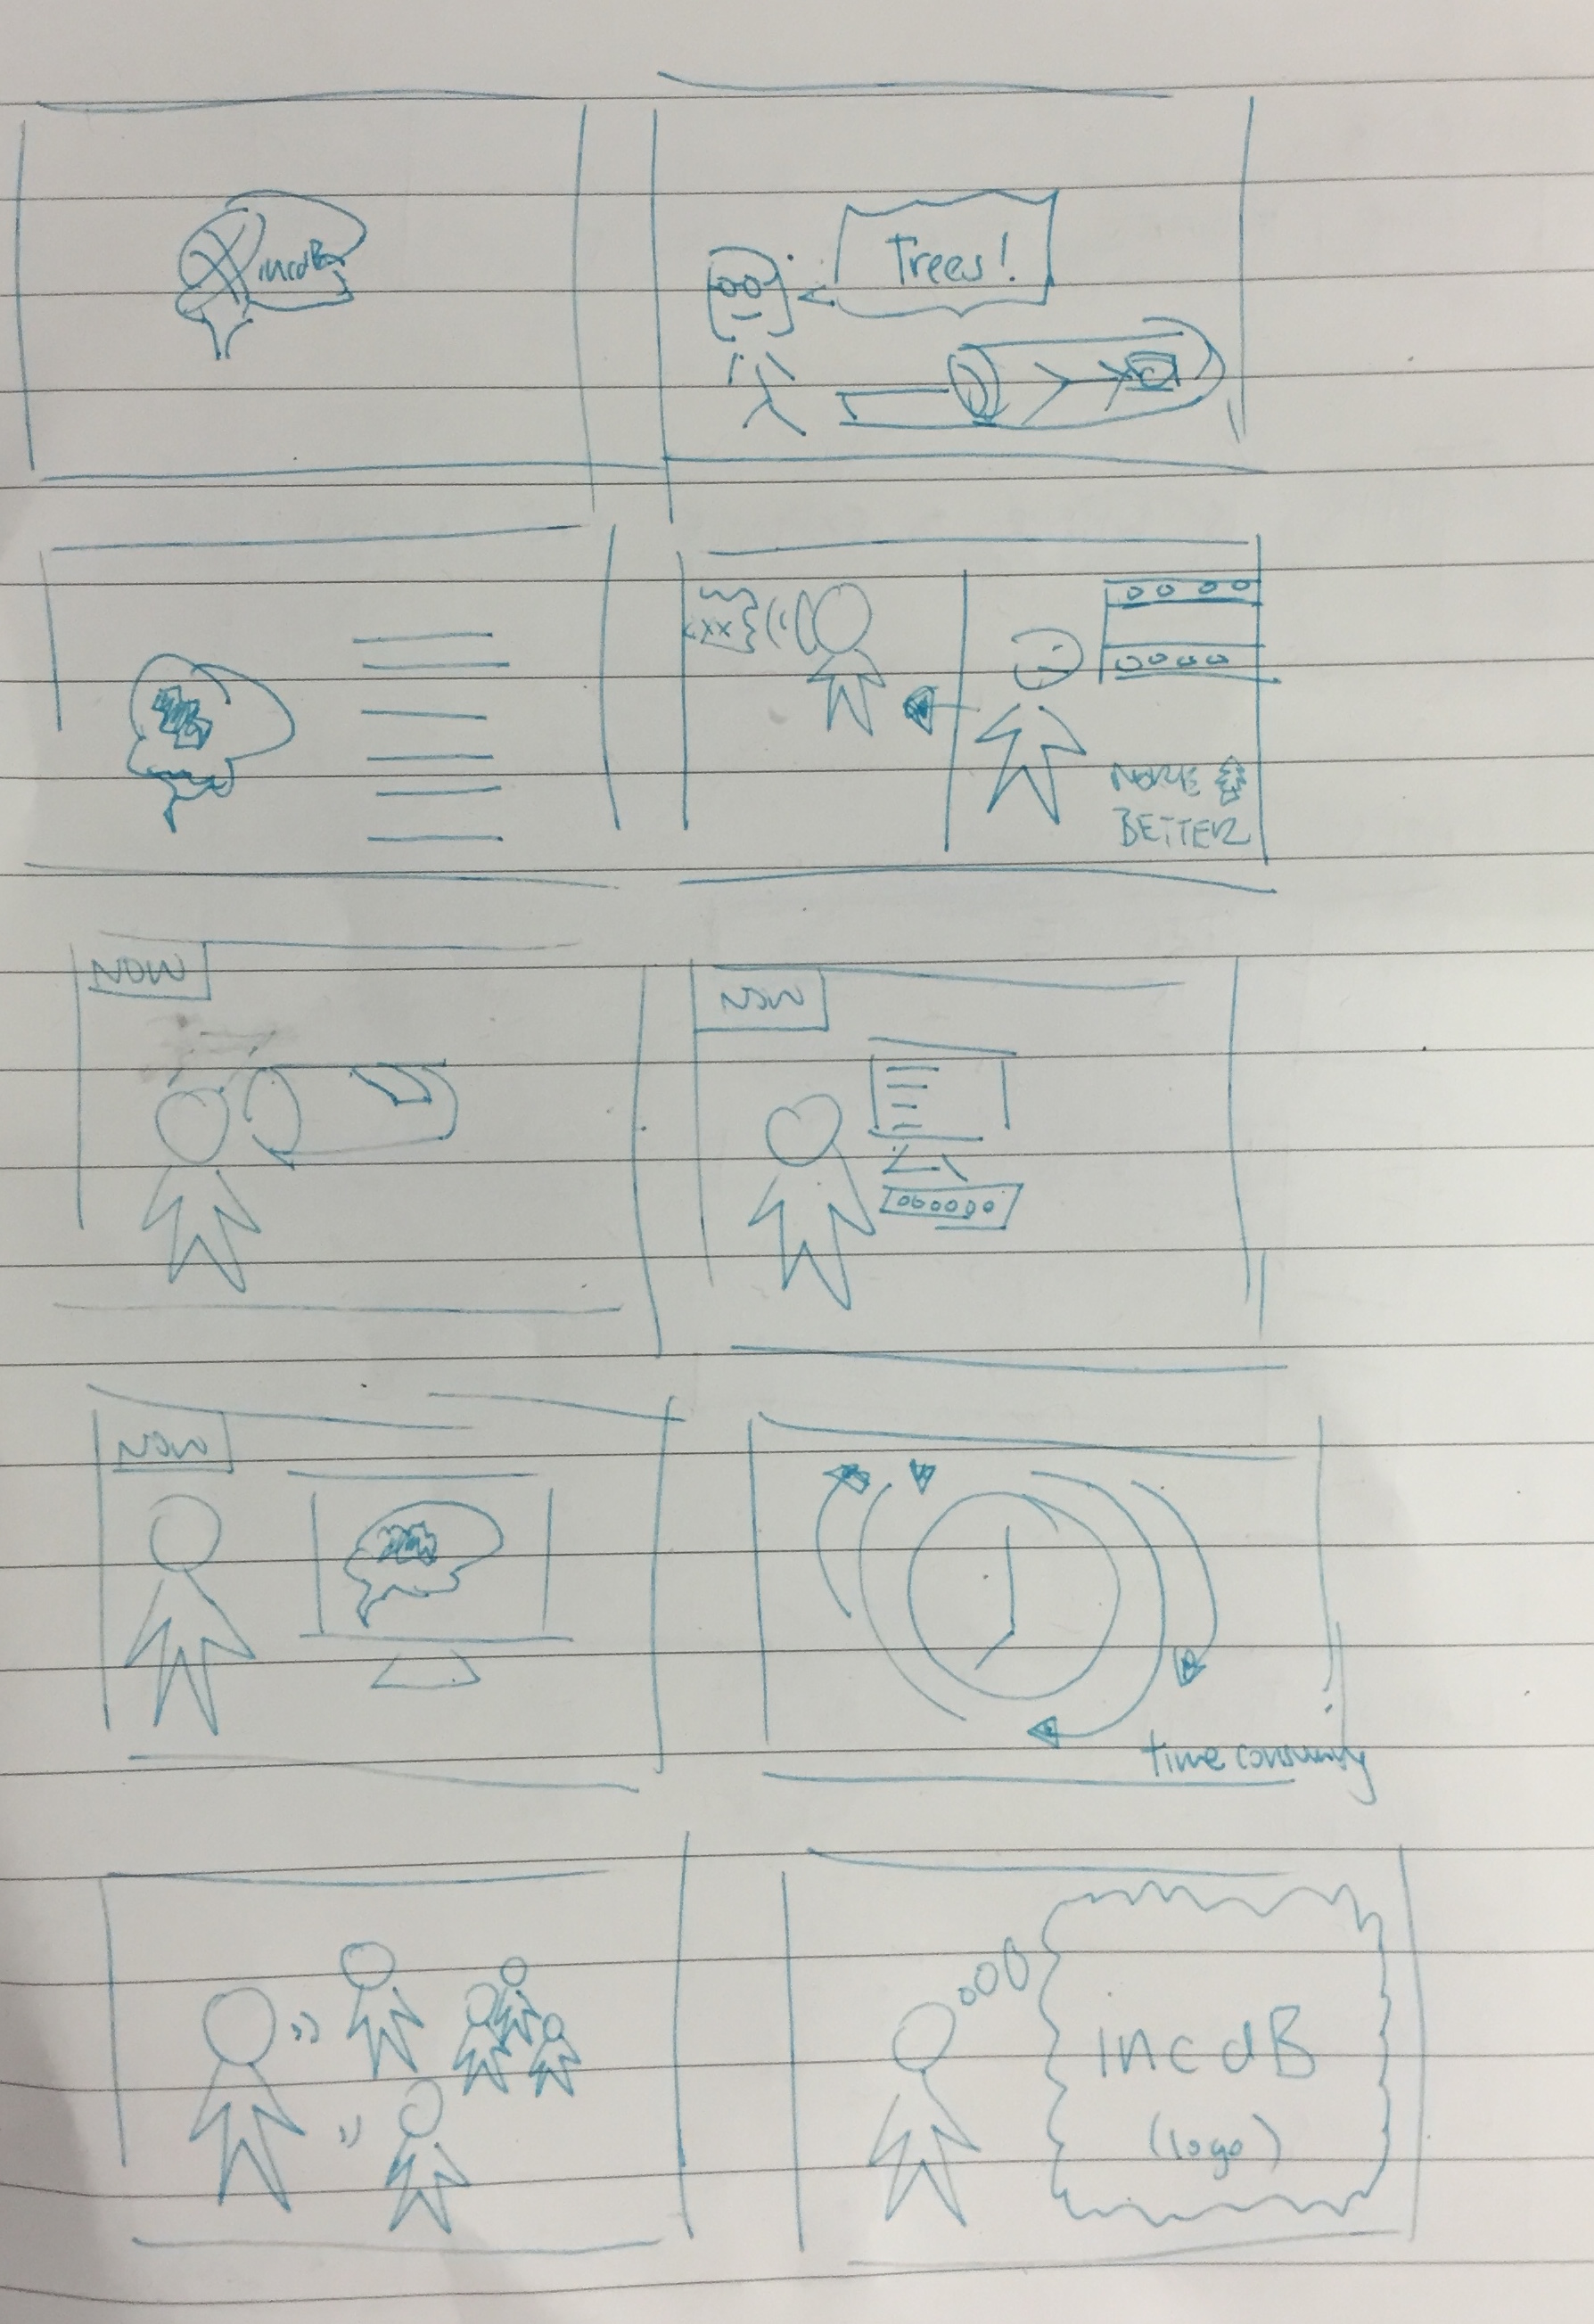 incdB
Trees!
xx
MORE
BETTER
NOW
NOW
NOW
time consuming
incdB
(logo)